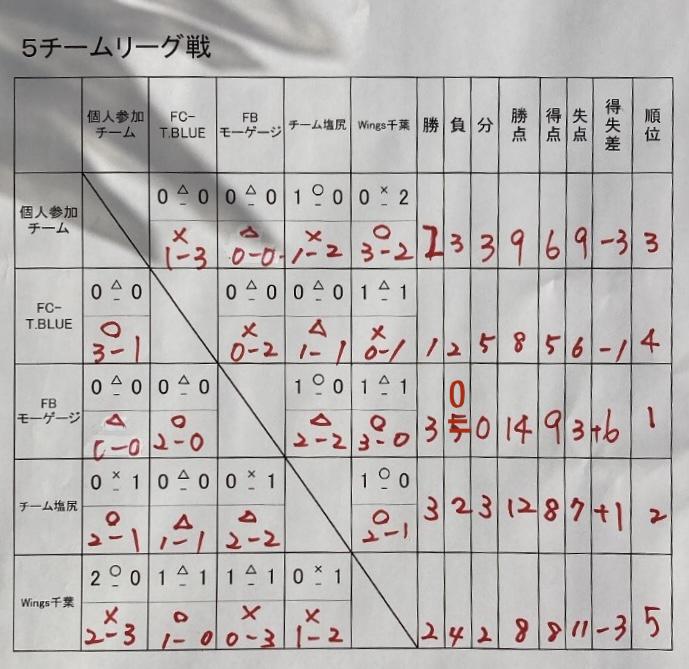 5チームリーグ戦
個人参加チーム FC-T.BLUE FBモーゲージ チーム塩尻 Wings千葉 勝 負 分 勝点 得点 失点 得失差 順位
0 △ 0 0 △ 0 1 ○ 0 0 × 2
個人参加チーム
× △ × ○
1-3 0-0 1-2 3-2 2 3 3 9 6 9 -3 3
0 △ 0 0 △ 0 0 △ 0 1 △ 1
FC-T.BLUE
○ × △ ×
3-1 0-2 1-1 0-1 1 2 5 8 5 6 -1 4
0 △ 0 0 △ 0 1 ○ 0 1 △ 1
FBモーゲージ
△ ○ △ ○ 0
0-0 2-0 2-2 3-0 3 5 0 14 9 3 +6 1
0 × 1 0 △ 0 0 × 1 1 ○ 0
チーム塩尻
○ △ △ ○
2-1 1-1 2-2 2-1 3 2 3 12 8 7 +1 2
2 ○ 0 1 △ 1 1 △ 1 0 × 1
Wings千葉
× ○ × ×
2-3 1-0 0-3 1-2 2 4 2 8 8 11 -3 5